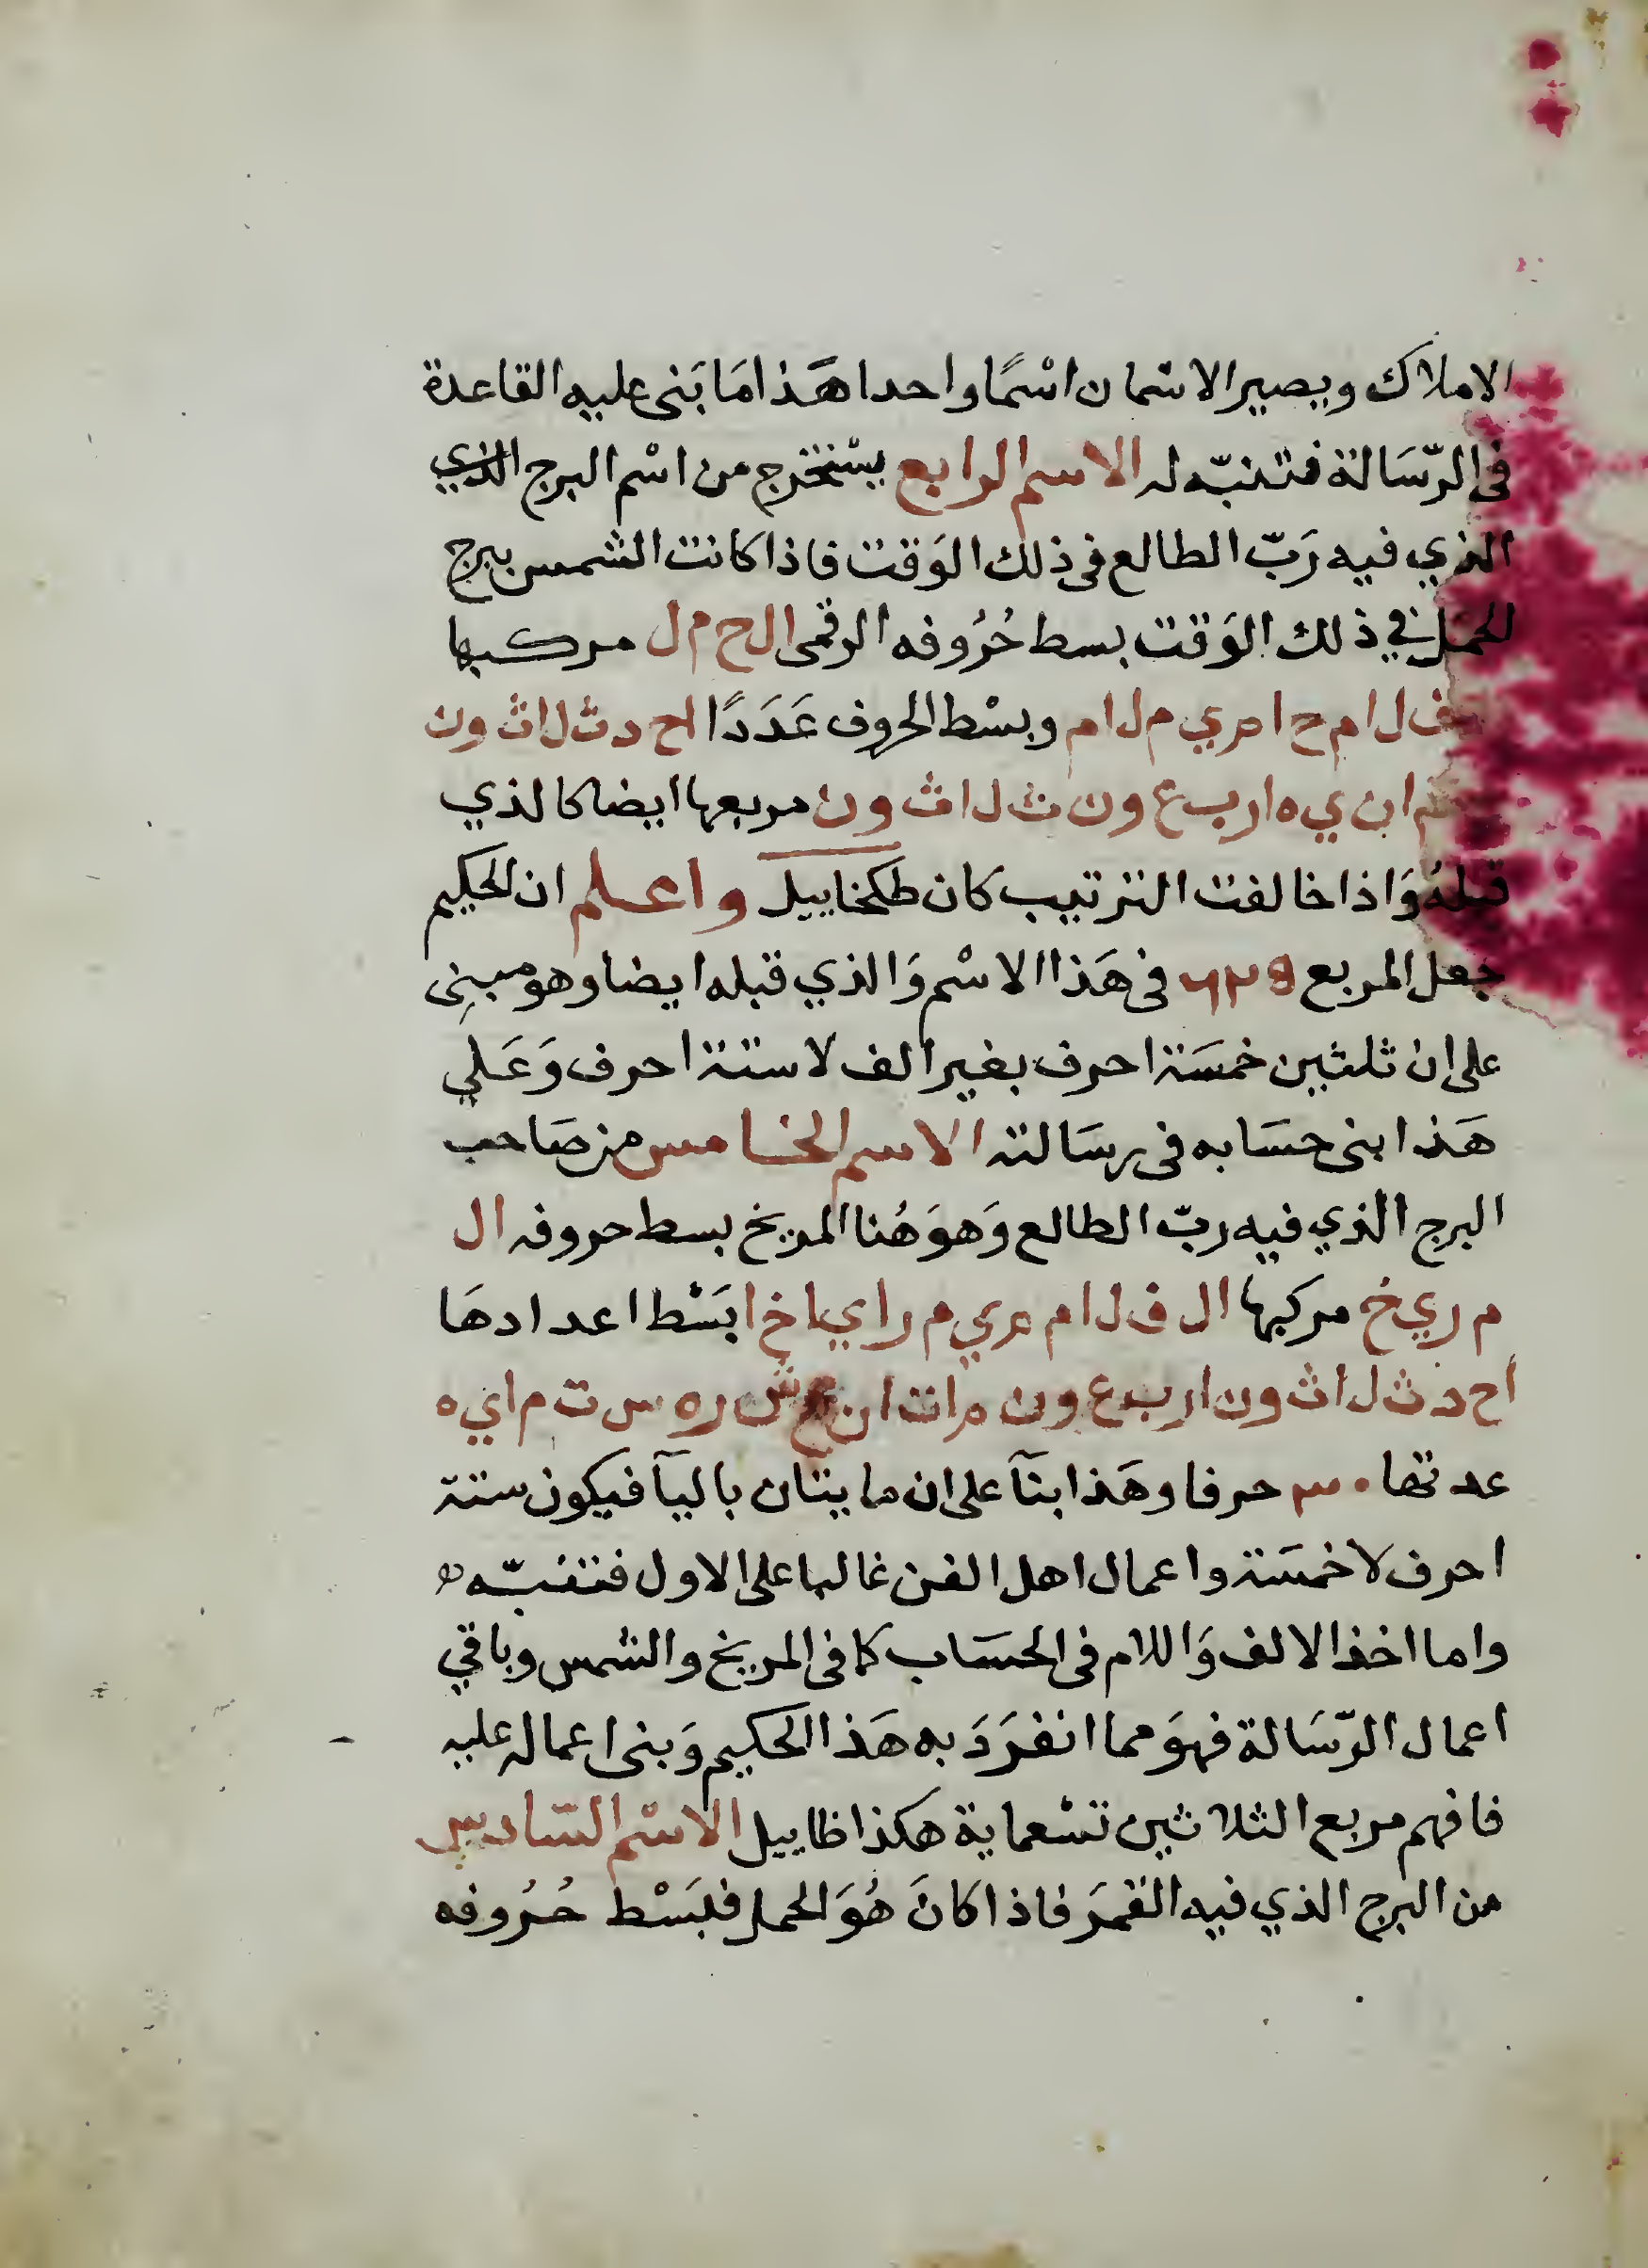 الاملاك ويصير الاسمان اسْمًا واحدا هَذا مَا بَنى عليه القاعدة
فى الرّسَالة فتنبّه له الاسم الرابع يستخرج من اسْم البرج الذي
الذي فيه رَبّ الطالع فى ذلك الوَقت فاذا كانت الشمس ببرج
الحمل في ذلك الوَقت بسط حُرُوفه الرقمى ال ح م ل مركبها
ف ل ا م ح ا م ي م ل ا م وبسْط الحروف عَدَدًا ا ح د ث ل ا ث و ن
م ا ن ي ه ا ر ب ع و ن ث ل ا ث و ن مربعها ايضا كالذي
قبلهُ وَاذا خالفت الترتيب كان طكخاييل واعلم ان الحكيم
جعل المربع ٦٢٥ فى هَذا الاسْم وَالذي قبله ايضا وهو مبنِى
على ان ثلثين خمسَة احرف بغير الف لا ستة احرف وَعَلي
هَذا بنى حسَابه فى رسَالته الاسم الخامس من صَاحب
البرج الذي فيه ربّ الطالع وَهوَ هُنا المريخ بسط حروفه ال
م ر ي خ مركبها ا ل ف ل ا م م ي م ر ا ي ا خ ا بَسْط اعدادهَا
ا ح د ث ل ا ث و ن ا ر ب ع و ن م ا ت ا ن ع ش ر ه س ت م ا ي ه
عدتها ٣٠ حرفا وهَذا بنآ على ان مايتان باليآ فيكون ستة
احرف لا خمسَة واعمال اهل الفن غالبها على الاول فتنبّه
واما اخذ الالف وَاللام فى الحسَاب كما فى المريخ والشمس وباقي
اعمال الرّسَالة فهوَ مما انفرَدَ به هَذا الحكيم وَبنى اعماله عليه
فافهم مربع الثلاثين تسْعماية هكذا ظاييل الاسْم السّادس
من البرج الذي فيه القمرَ فاذا كانَ هُوَ الحمل فبَسْط حُرُوفه